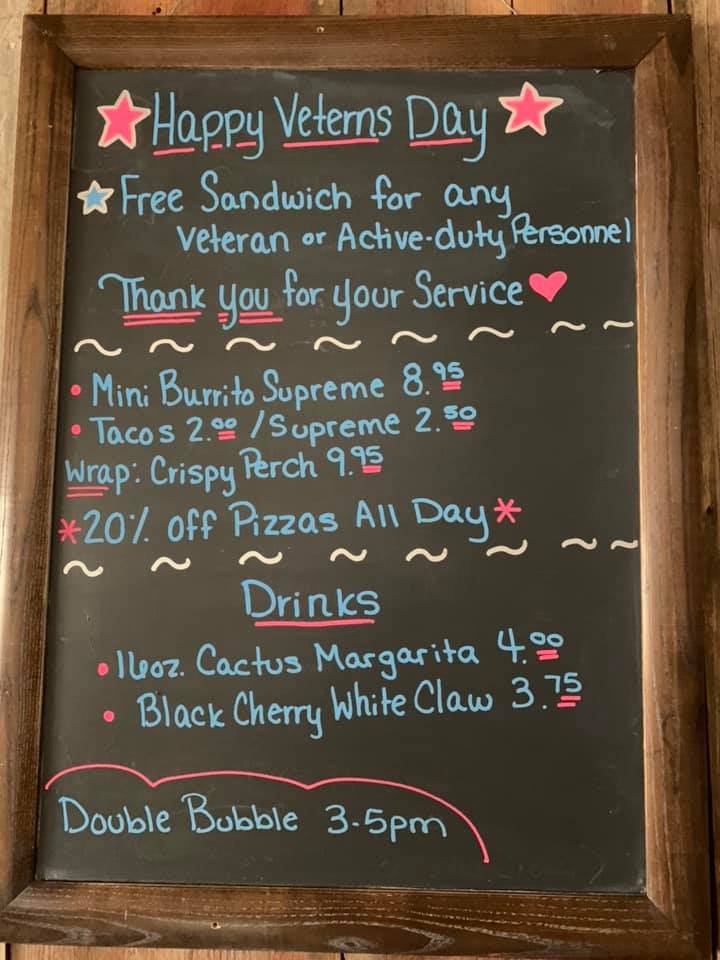 Happy Veterns Day
Free Sandwich for any
Veteran or Active-duty Personnel
Thank you for your Service
• Mini Burrito Supreme 8.95
• Tacos 2.00 / Supreme 2.50
Wrap: Crispy Perch 9.95
*20% off Pizzas All Day*
Drinks
• 16oz. Cactus Margarita 4.00
• Black Cherry White Claw 3.75
Double Bubble 3-5pm